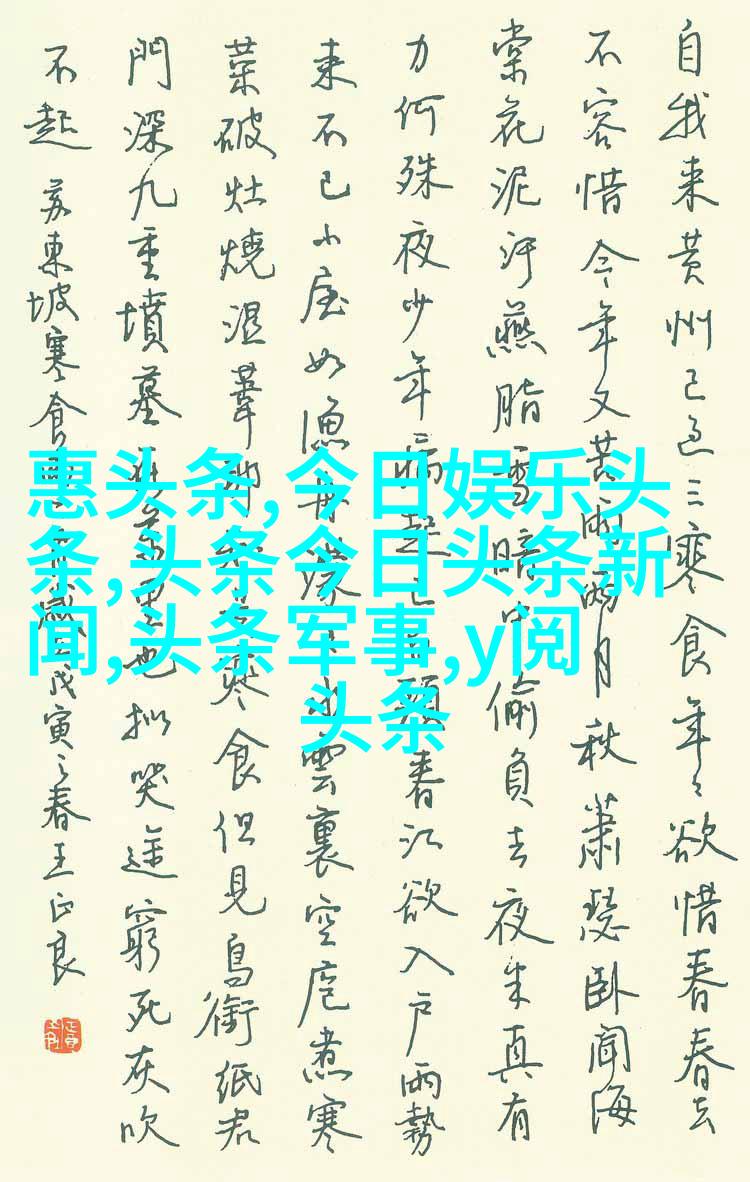 自我来黄州已過三寒食年々欲惜春春去
不容惜今年又苦雨兩月秋蕭瑟卧闻海
棠花泥汙燕脂雪暗中偷負去夜半真有
力何殊夜少年病起已白頭春江欲入户雨勢
来不已小屋如漁舟濛々水雲裏空庖煮寒
菜破灶燒濕葦那知是寒食但見烏銜纸君
門深九重墳墓在萬里也拟哭途窮死灰吹
不起 苏東坡寒食歲戊寅之春王正良
惠头条,今日娱乐头
条,头条今日头条新
闻,头条军事,y阅
头条